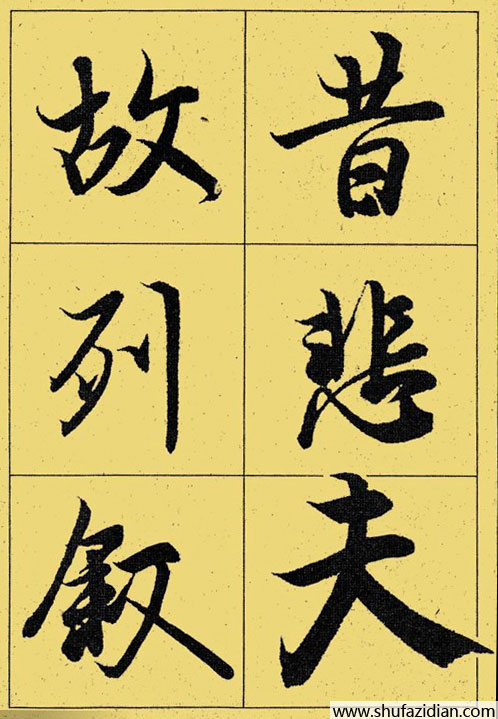 昔悲夫
故列叙
www.shufazidian.com